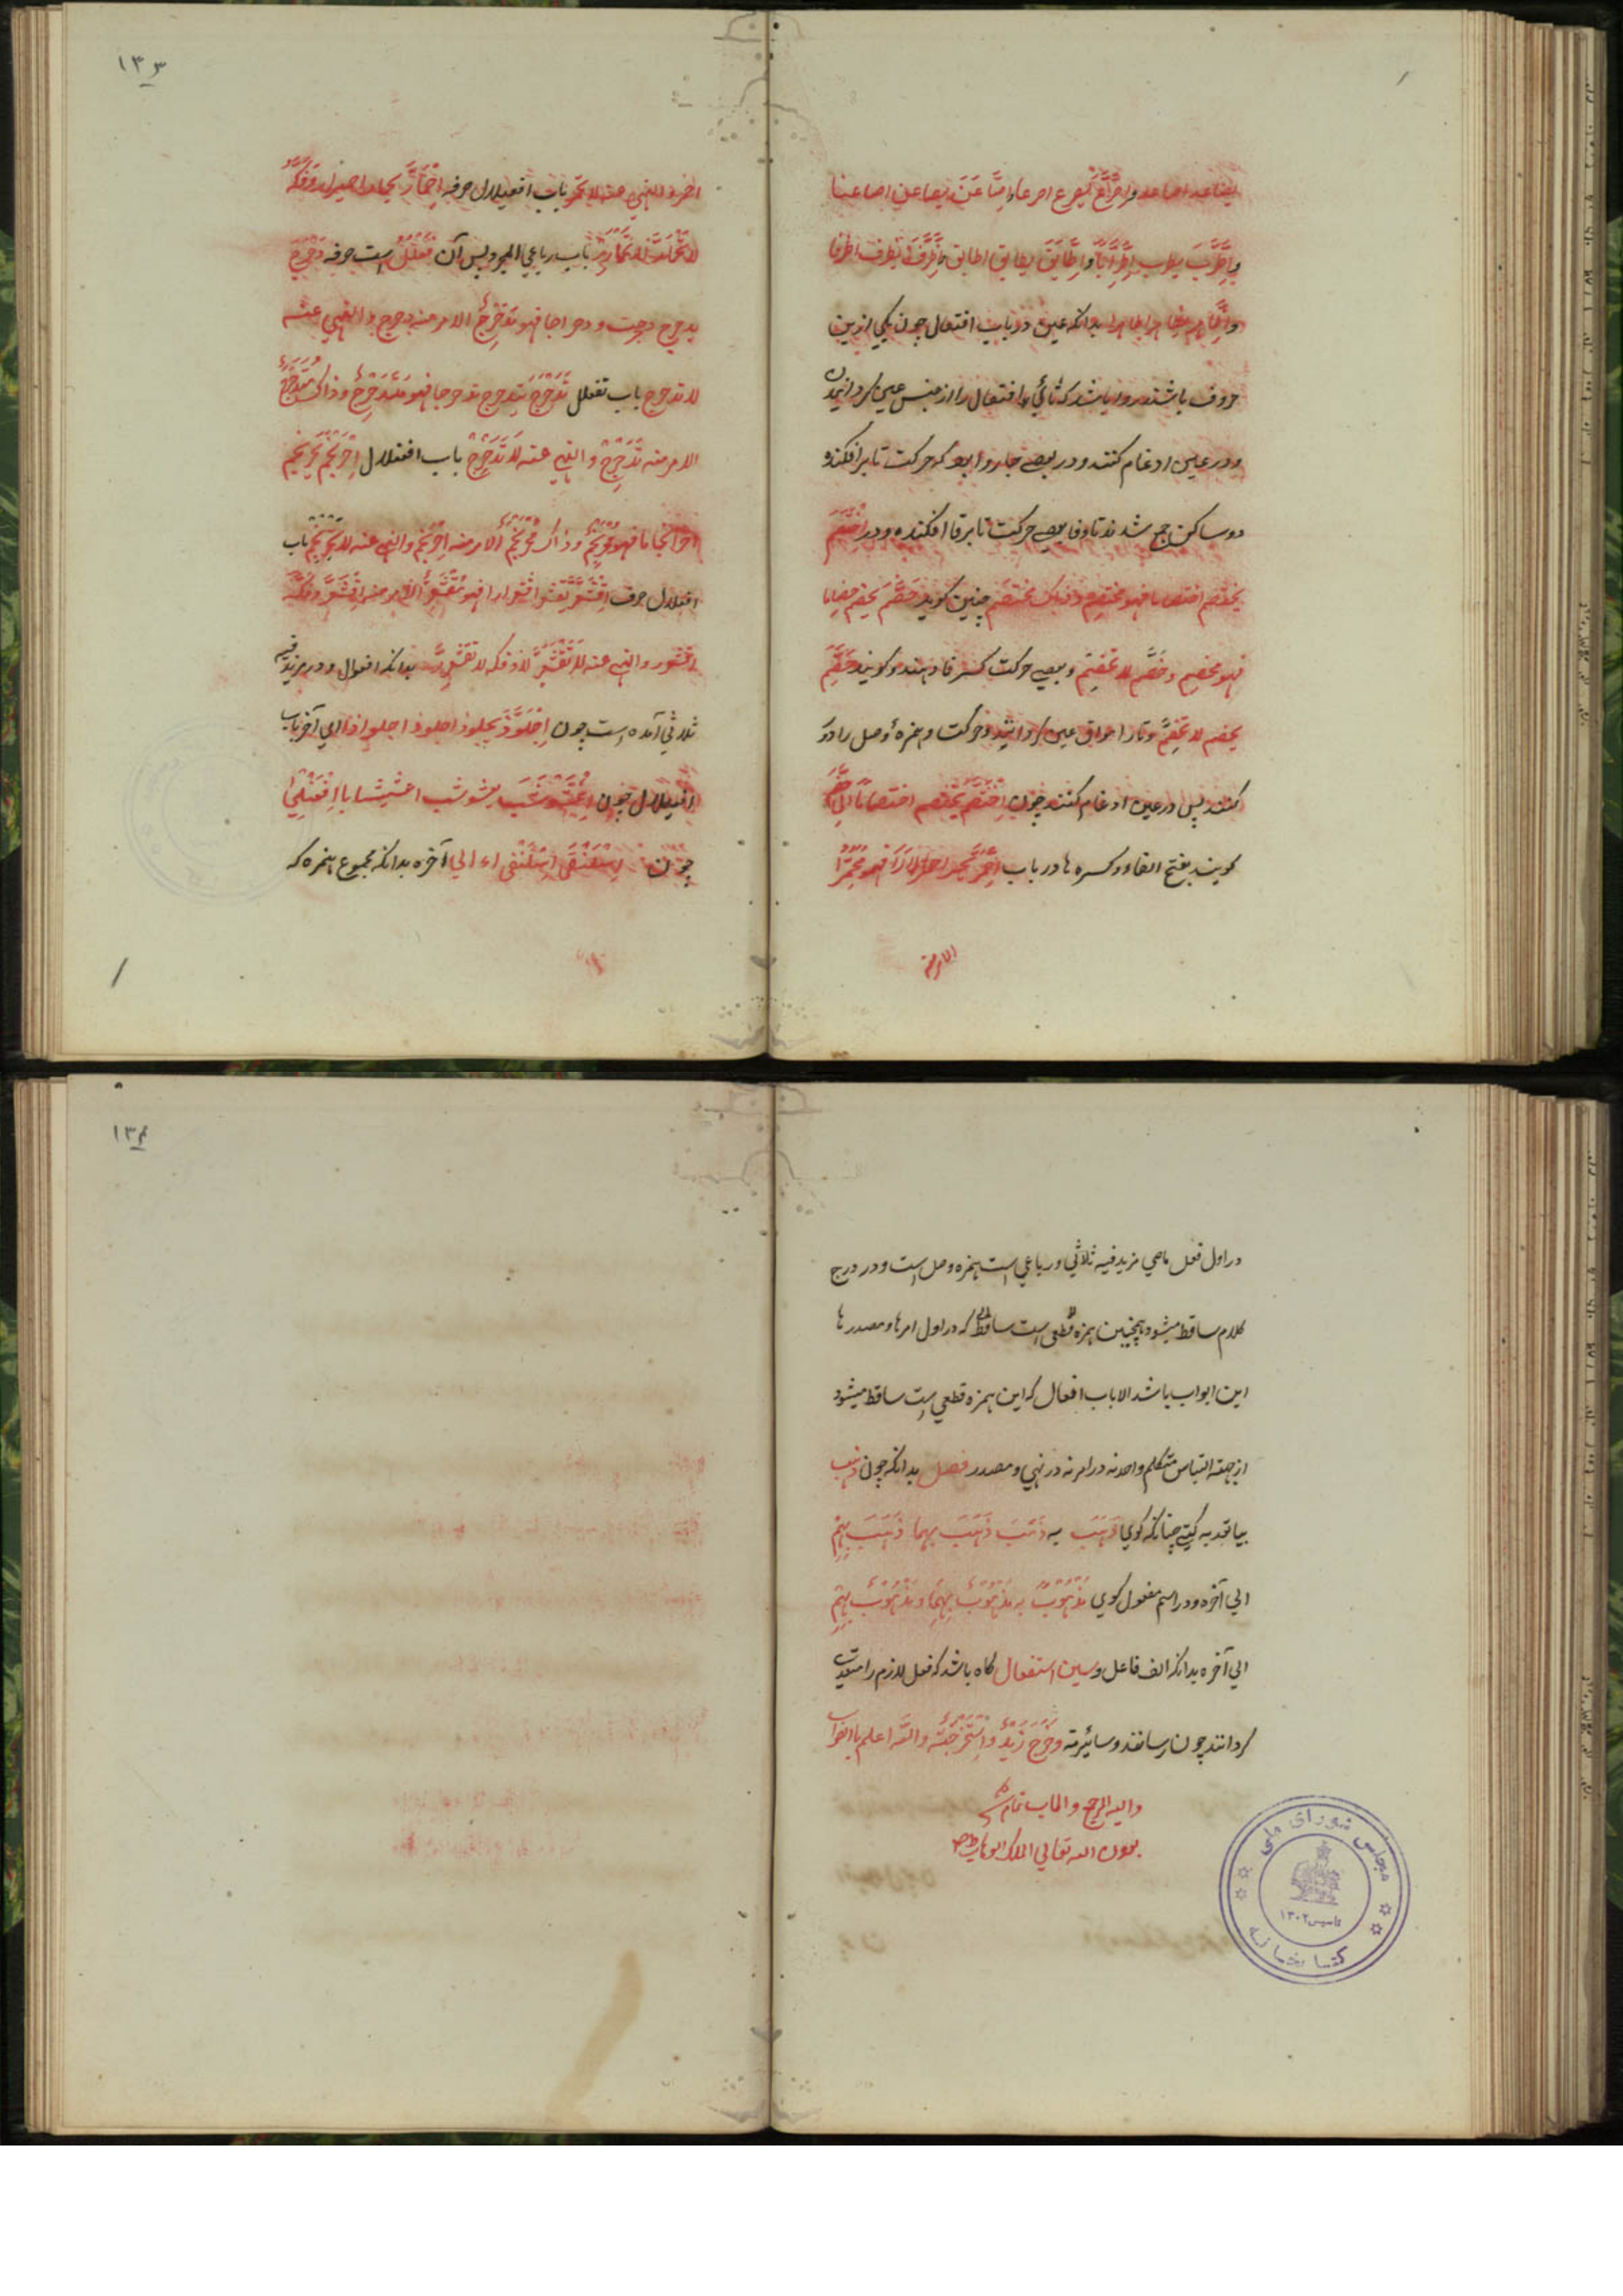 و اطاهر یطاهر اطاهرا بدانکه عین در باب افتعال چون یکی ازین
حروف باشد روا باشد که تائی افتعال را از جنس عین گردانیدن
و در عین ادغام کنند و در بعضی جا روا بود که حرکت تا برافکنده
دو ساکن جمع شدند تا و فا بعضی حرکت تا برفا افکنده و در اختصم
یختصم اختصاما فهو مختصم و ذاک مختصم چنین کوید خصم یخصم خصاما
فهو مخصم و خصم لا تخصم و بعضی حرکت کسر فا دهند و کویند خصم
یخصم لا تخصم و تا را موافق عین گردانید و حرکت و همزهٔ وصل را دور
کنند پس در عین ادغام کنند چون اختصم یختصم اختصاما الی خصم
کویند بفتح الفاء و کسره ها در باب احمر یحمر احمرارا فهو محمر
الامر منه
۱۳۳
باب افعیلال حرفه احمار
باب رباعی المجرد پس آن فعلل است حرفه دحرج
یدحرج دحرجت و دحراجا فهو مدحرج الامر منه دحرج و النهی عنه
لا تدحرج باب تفعلل تدحرج یتدحرج تدحرجا فهو متدحرج و ذاک متدحرج
الامر منه تدحرج و النهی عنه لا تدحرج باب افعنلال احرنجم یحرنجم
احرنجاما فهو محرنجم و ذاک محرنجم الامر منه احرنجم و النهی عنه لا تحرنجم باب
افعلال حرف اقشعر یقشعر اقشعرارا فهو مقشعر الامر منه اقشعر و فکه
اقشعرر و النهی عنه لا تقشعر لا و فکه لا تقشعرر بدانکه افعوال و در مزید فیه
ثلاثی آمده است چون اجلوذ یجلوذ اجلوذ اجلواذا الی آخر باب
افعیلال چون اعشوشب یعشوشب اعشیشابا افعنلی
چون اسلنقی اسلنقی اء الی آخره بدانکه مجموع همزه که
در اول فعل ماضی مزید فیه ثلاثی و رباعی است همزه وصل است و در درج
کلام ساقط میشود همچنین همزه قطعی است ساقط که در اول امرها و مصدرها
این ابواب باشد الا باب افعال که این همزه قطعی است ساقط میشود
از جهة التباس متکلم واحد نه در امر نه در نهی و مصدر فصل بدانکه چون ذهب
بیا تعدیه کیتی چنانکه کوی ذهب به ذهب ذهب بهما ذهب بهم
الی آخره و در اسم مفعول کوی مذهوب به مذهوب بهما و مذهوب بهم
الی آخره بدانکه الف فاعل و سین استفعال کاه باشد که فعل لازم را متعدی
گردانند چون رسانند و سائرته و خرج زید و استخرجته والله اعلم بالصواب
والیه المرجع والماب تمام شد
بعون الله تعالی الملک الوهاب
مجلس شورای ملی
تاسیس ۱۳۰۲
کتابخانه
۱۳۴